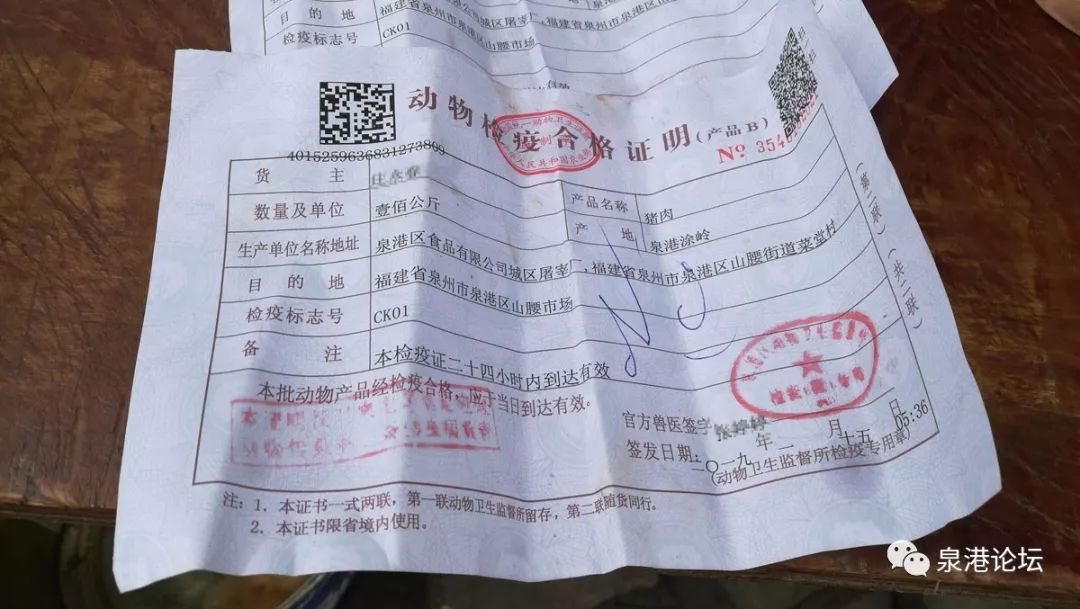 目的地 福建省泉州市泉港区山腰市场
检疫标志号 CK01
动物检疫合格证明(产品B)
4015259636831273809
No 354
货主
数量及单位 壹佰公斤 产品名称 猪肉
生产单位名称地址 泉港区食品有限公司城区屠宰厂,福建省泉州市泉港区山腰街道菜堂村
产地 泉港涂岭
目的地 福建省泉州市泉港区山腰市场
检疫标志号 CK01
备注 本检疫证二十四小时内到达有效
本批动物产品经检疫合格,应于当日到达有效。
官方兽医签字
签发日期:二〇一九年一月十五日 05:36
(动物卫生监督所检疫专用章)
注:1. 本证书一式两联,第一联动物卫生监督所留存,第二联随货同行。
2. 本证书限省境内使用。
第二联(共二联)
泉港论坛